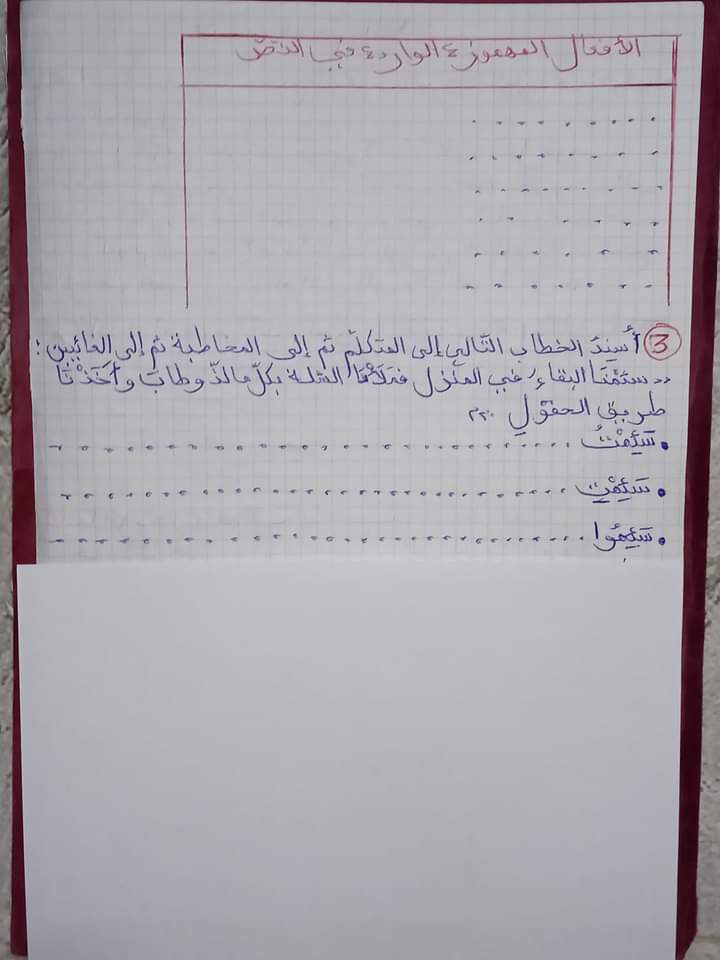 الأفعال المهموزة الواردة في النص
③ أسند الخطاب التالي إلى المتكلّم ثم إلى المخاطبة ثم إلى الغائبين :
«سئمْنَا البقاء في المنزل فملأْنَا السّلة بكلّ ما لذّ وطاب وأخَذْنَا
طريق الحقول
. سَئِمْتُ ........................
. سَئِمْتِ ........................
. سَئِمُوا ........................